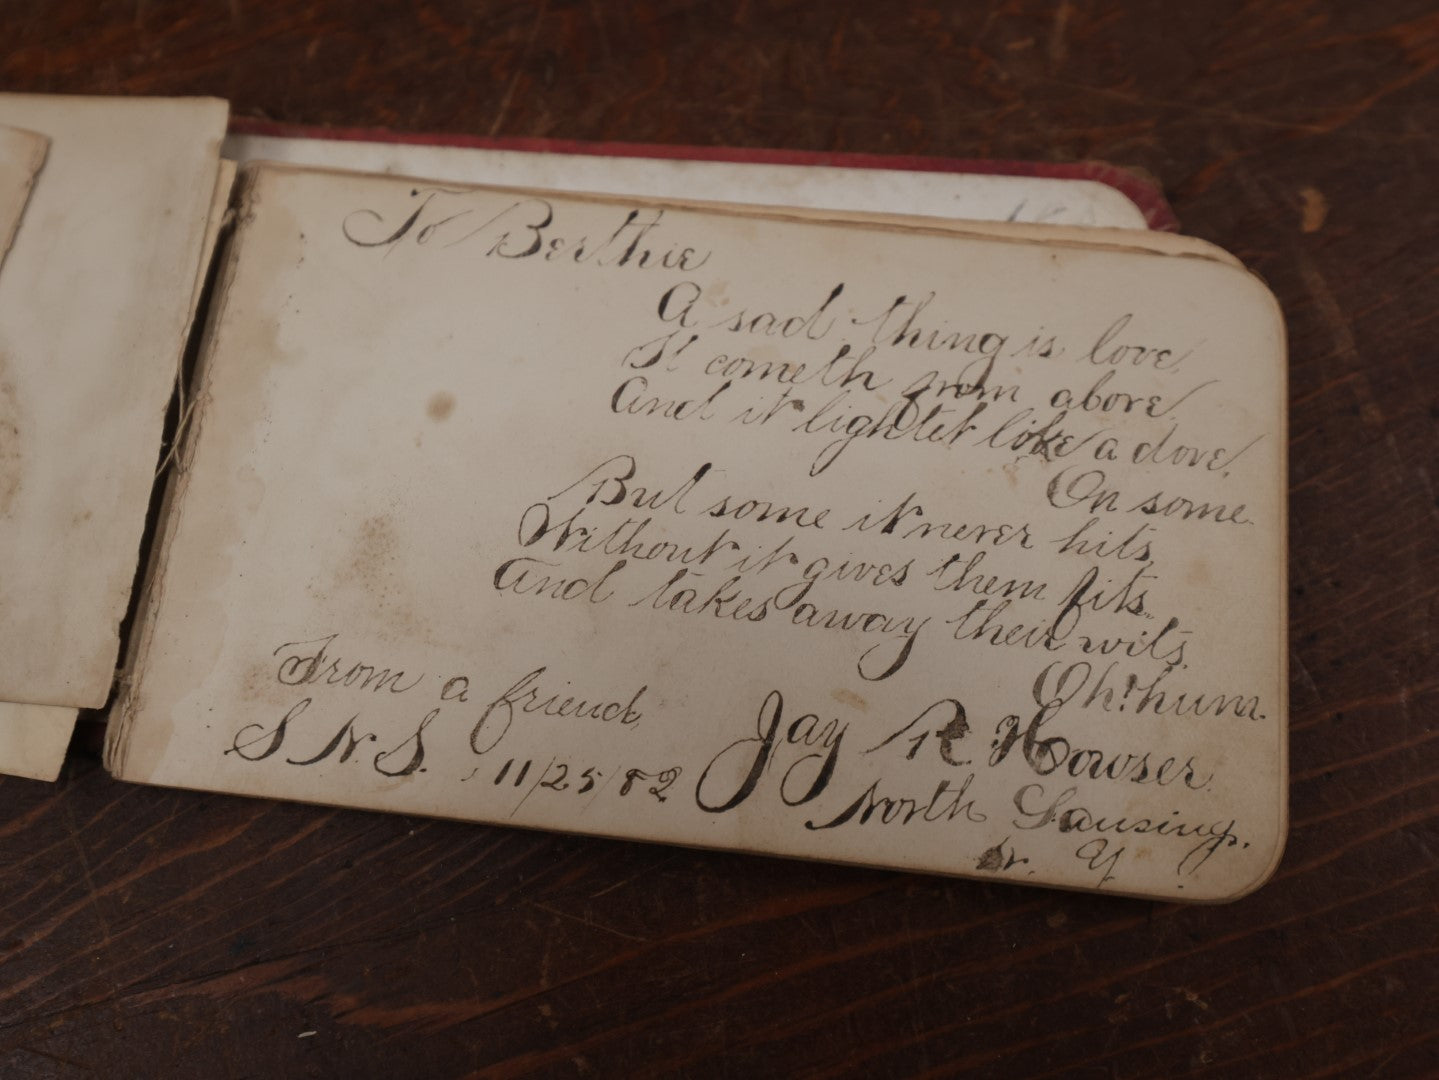 To Berthie
A sad thing is love,
It cometh from above,
And it lightet like a dove,
On some.
But some it never hits,
Without it gives them fits,
And takes away their wits,
Oh! hum.
From a friend,
Jay R. Howser.
S. N. S. 11/25/82
North Lansing,
N. Y.